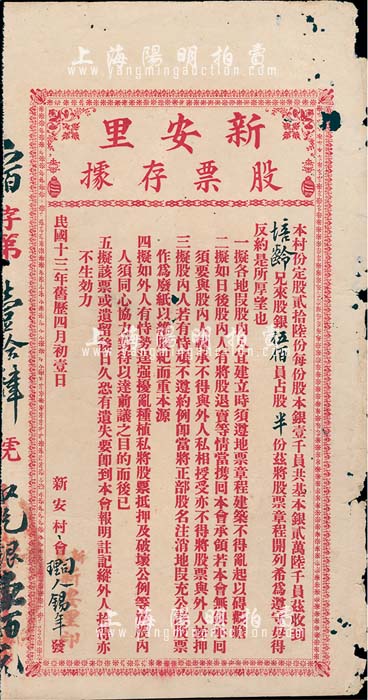 上海陽明拍賣
www.yangmingauction.com
新安里
股票存據
本村份定股貳拾陸份每份股本銀壹千員共基本銀貳萬陸千員茲收到
培齡兄來股銀伍佰員占股半份茲將股票章程開列希為遵守毋得
反約是所厚望也
一擬各地叚股內人等建立時須遵地票章程建築不得亂起以碍觀瞻
二擬如日後股內人將股退賣等情當攜回本會承領若本會無
須要與股內人承受不得與外人私相授受亦不得將股票與外人按押
三擬股內人若有恃勢不遵約例即當將正部股名注消地叚充公股票
作為廢紙以維股規而重本源
四擬如外人有恃勢逞强擾亂種植私將股票抵押及破壞公例等股內
人須同心協力以達前議之目的而後已
五擬該票或遺留後日久恐有遺失要即到本會報明註記縱外人拾得亦
不生効力
民國十二年舊歷四月初壹日
新安村會
人錫年
發
字第
號
上海陽明拍賣
www.yangmingauction.com